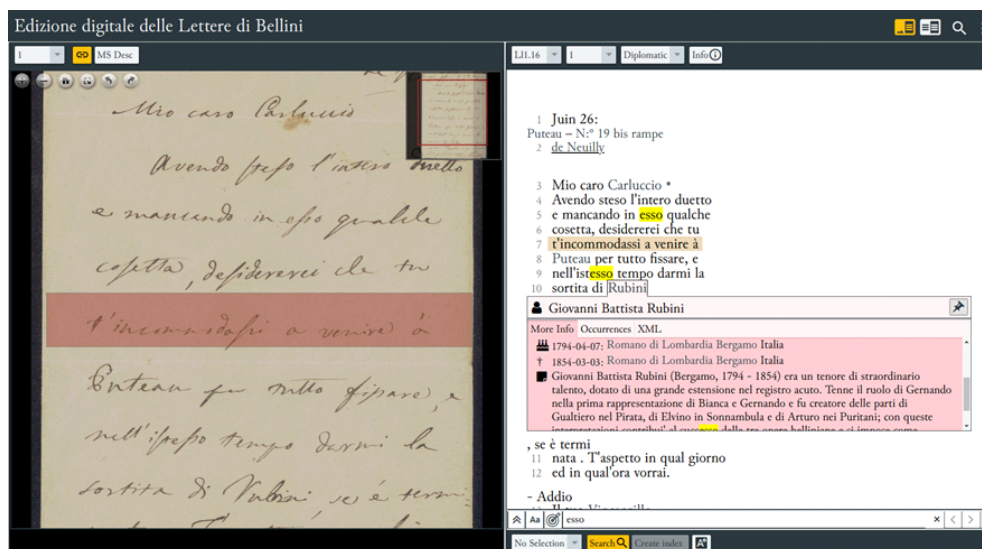 Edizione digitale delle Lettere di Bellini
1
MS Desc
Mio caro Carluccio
Avendo steso l'intero duetto
e mancando in esso qualche
cosetta, desidererei che tu
t'incommodassi a venire à
Puteau per tutto fissare, e
nell'istesso tempo darmi la
sortita di Rubini, se é termi
LI1.16 1 Diplomatic Info
1 Juin 26:
Puteau – N:º 19 bis rampe
2 de Neuilly
3 Mio caro Carluccio *
4 Avendo steso l'intero duetto
5 e mancando in esso qualche
6 cosetta, desidererei che tu
7 t'incommodassi a venire à
8 Puteau per tutto fissare, e
9 nell'istesso tempo darmi la
10 sortita di Rubini
Giovanni Battista Rubini
More Info Occurrences XML
1794-04-07: Romano di Lombardia Bergamo Italia
† 1854-03-03: Romano di Lombardia Bergamo Italia
Giovanni Battista Rubini (Bergamo, 1794 - 1854) era un tenore di straordinario
talento, dotato di una grande estensione nel registro acuto. Tenne il ruolo di Gernando
nella prima rappresentazione di Bianca e Gernando e fu creatore delle parti di
Gualtiero nel Pirata, di Elvino in Sonnambula e di Arturo nei Puritani; con queste
interpretazioni contribui' al successo delle tre opere belliniane e si impose come
, se è termi
11 nata . T'aspetto in qual giorno
12 ed in qual'ora vorrai.
- Addio
Il tuo Vincenzillo
Aa esso
No Selection Search Create index A